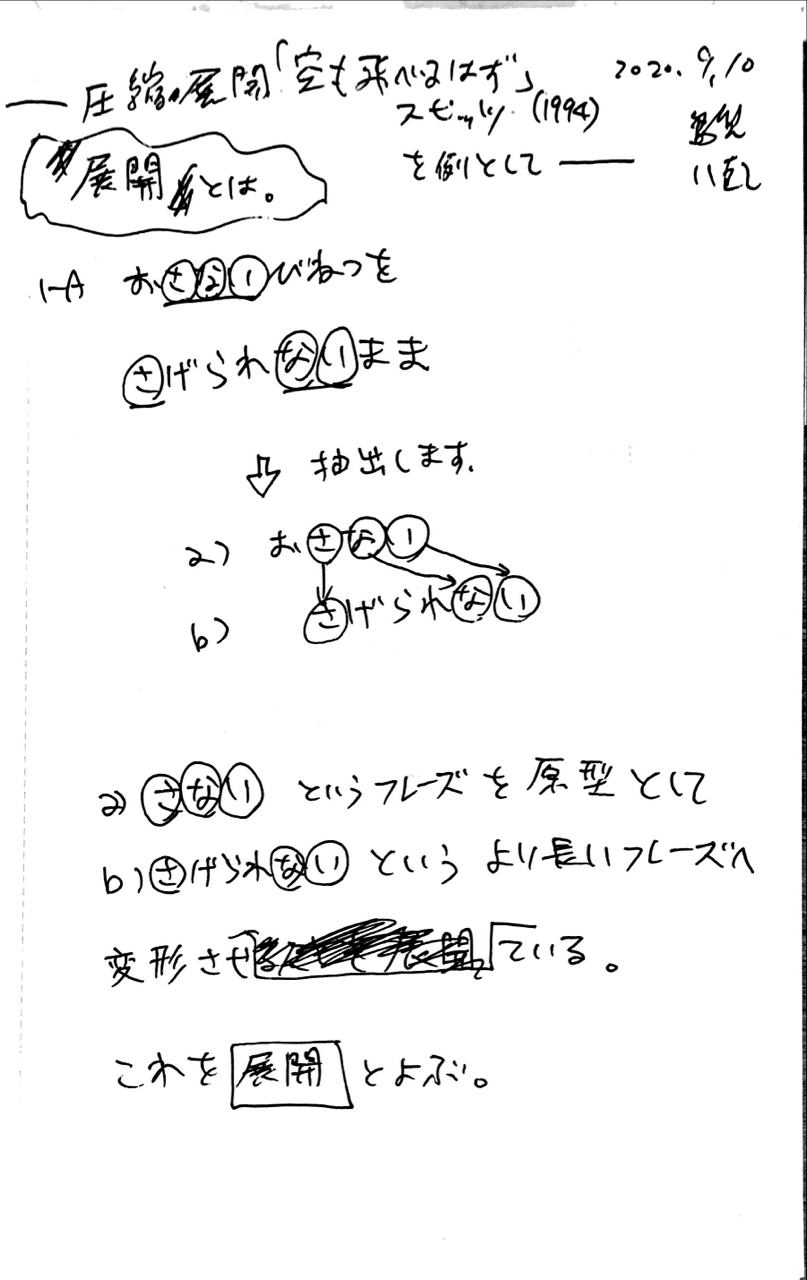 ― 圧縮・展開「空も飛べるはず」
2020.9.10
スピッツ (1994)
を例として ―
展開とは。
1-A おさないびねつを
さげられないまま
⇩ 抽出します.
a) おさない
b) さげられない
a) さない というフレーズを原型として
b) さげられない という より長いフレーズへ
変形させている。
これを 展開 とよぶ。